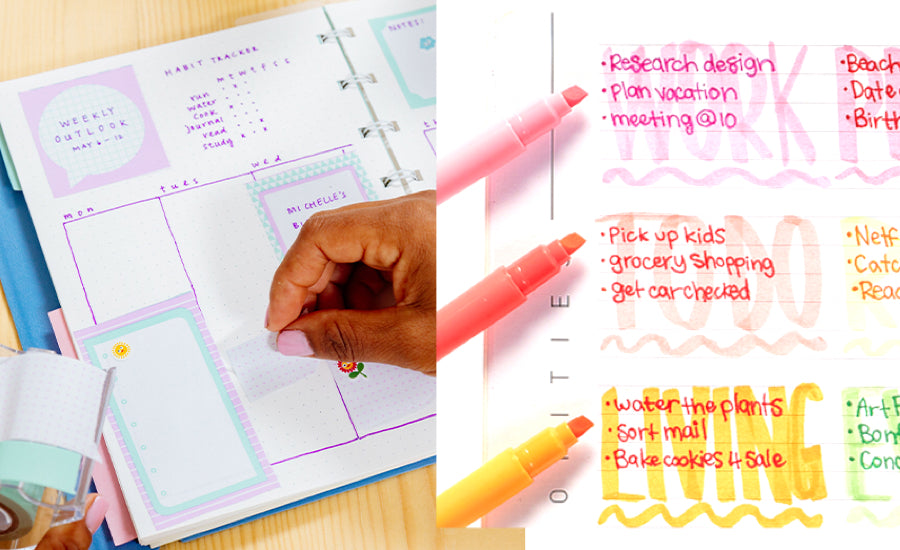 HABIT TRACKER
m t w t f s s
run
water
cook
journal
read
study
WEEKLY
OUTLOOK
MAY 6-12
NOTES:
mon
tues
wed
MICHELLE'S
WORK
•Research design
•plan vacation
•meeting @ 10
•Beach
•Date
•Birth
TO DO
•Pick up kids
•grocery shopping
•get car checked
•Netf
•Catc
•Read
LIVING
•water the plants
•Sort mail
•Bake cookies 4 sale
•Art
•Cond